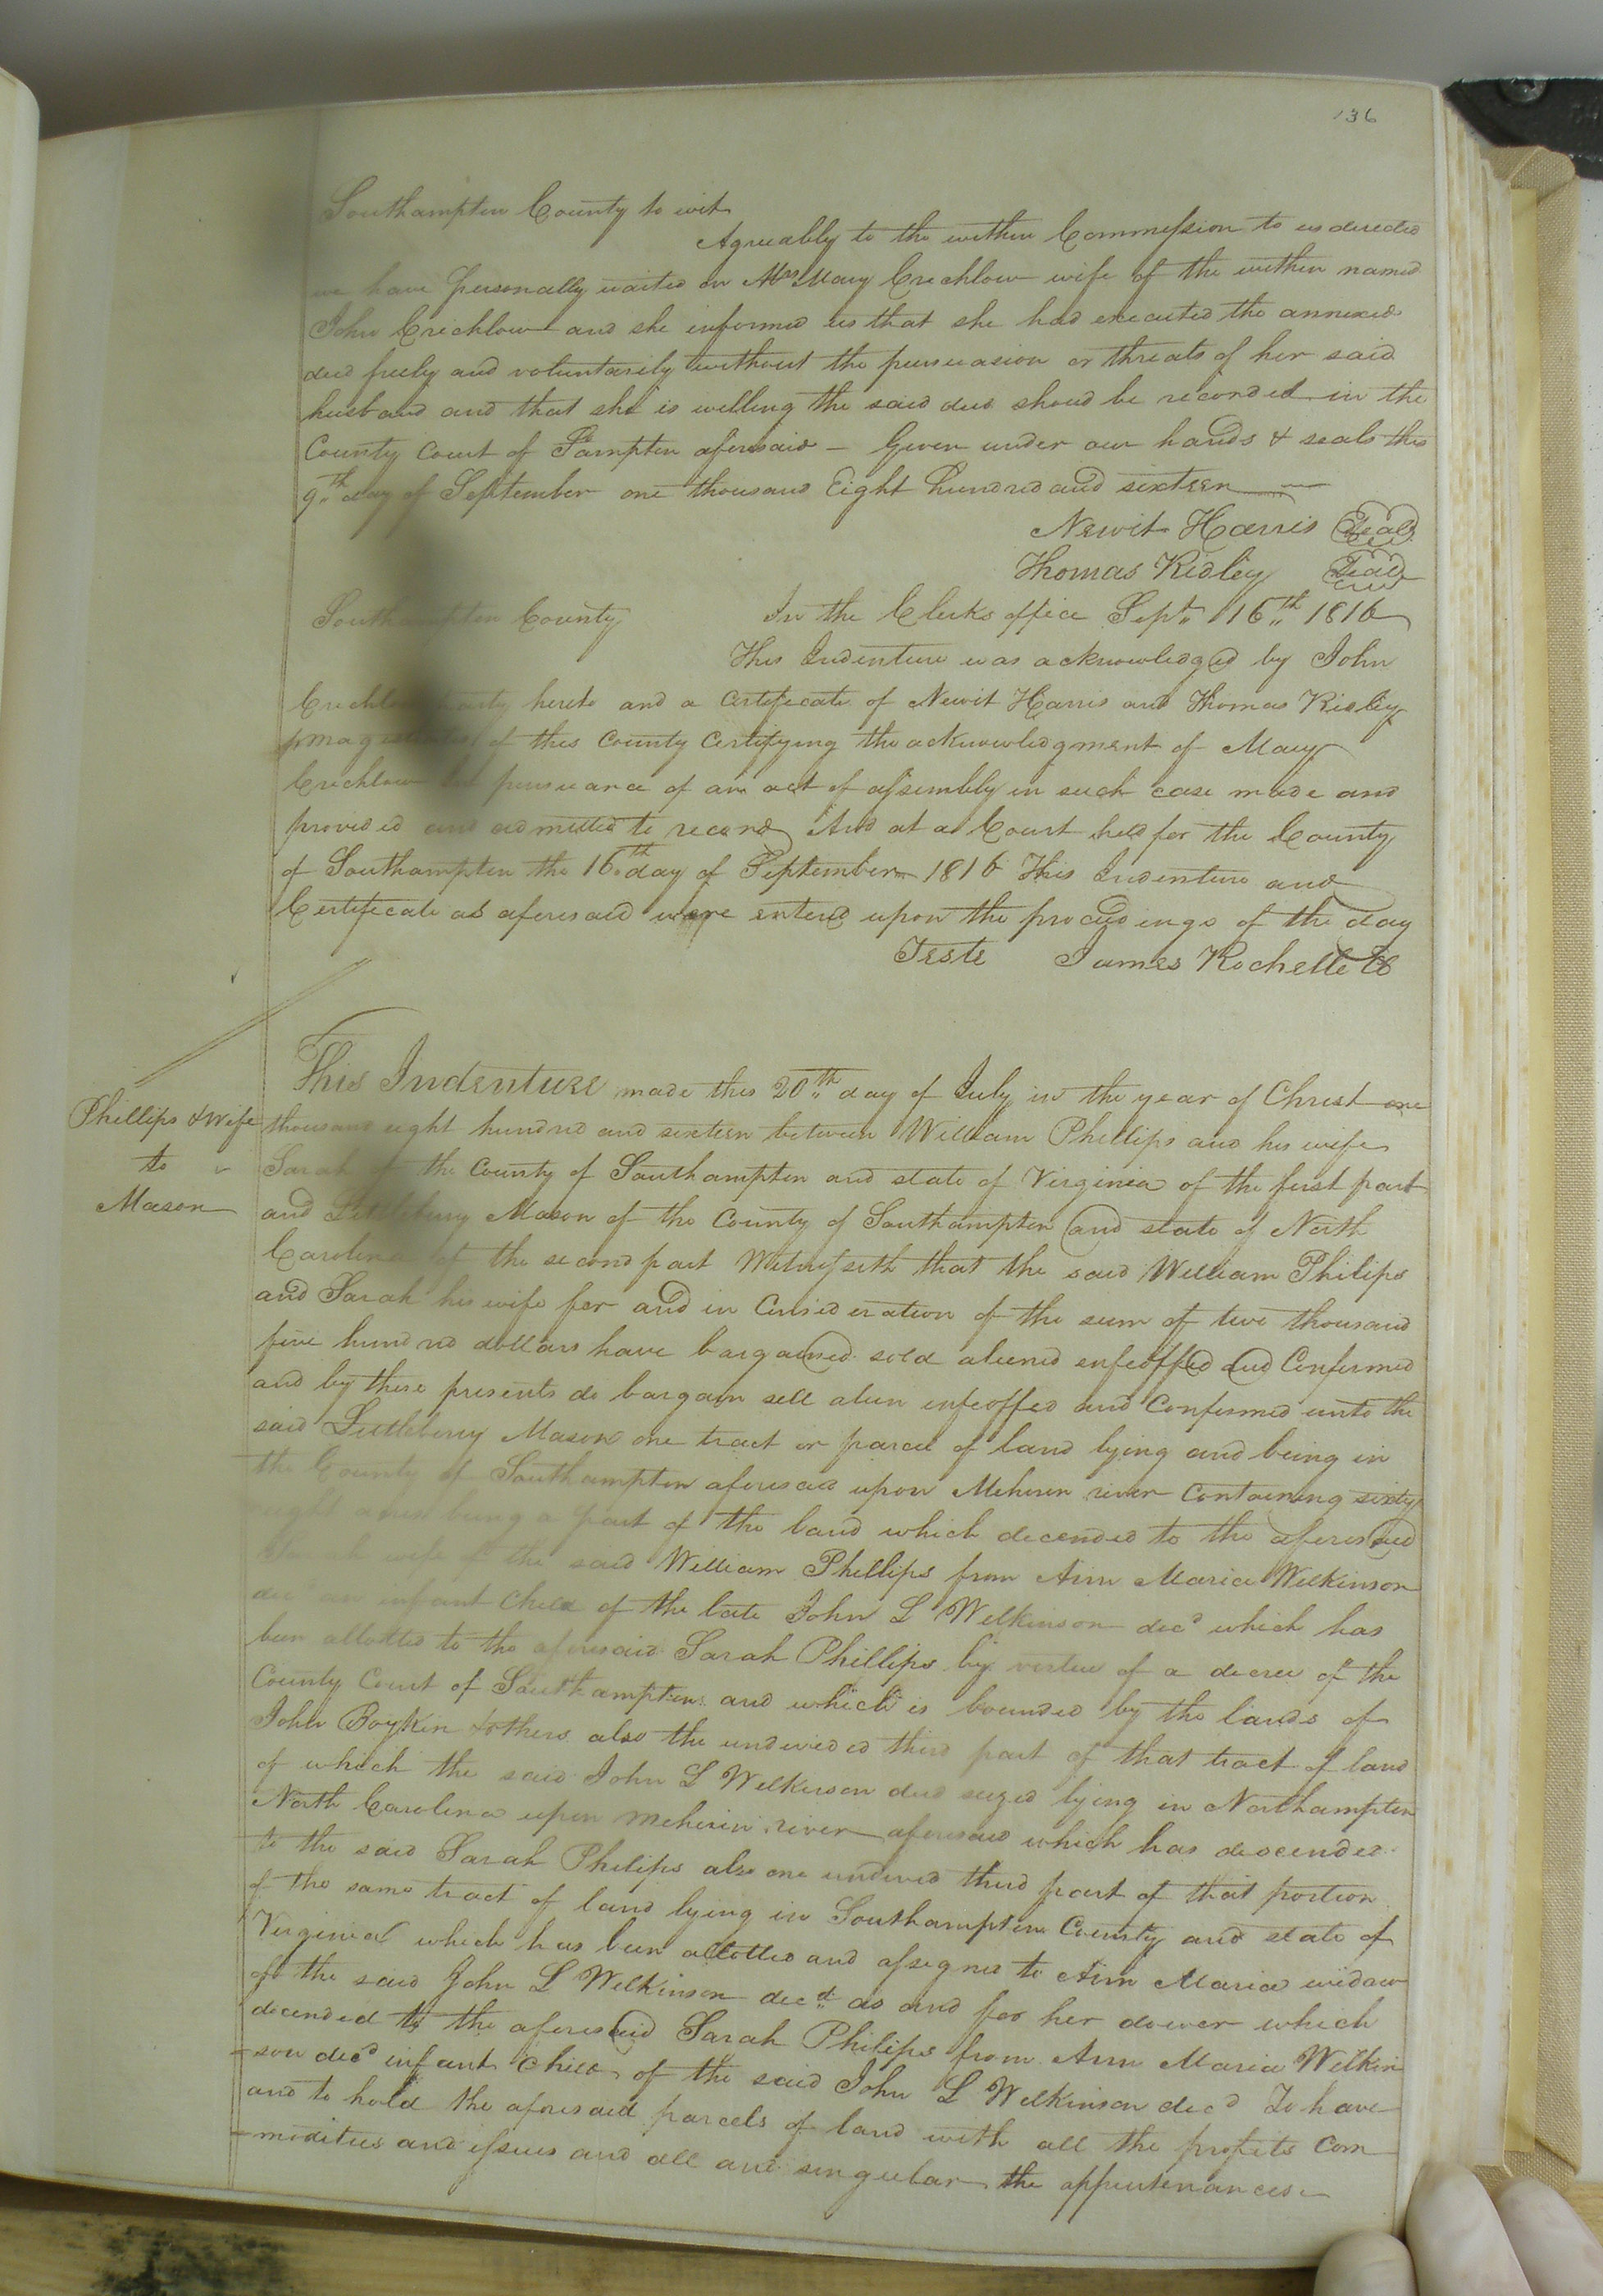 136
Southampton County to wit
Agreeably to the within Commission to us directed
we have personally waited on Mrs Mary Crichlow wife of the within named
John Crichlow and she informed us that she had executed the annexed
deed freely and voluntarily without the persuasion or threats of her said
husband and that she is willing the said deed shoud be recorded in the
County Court of Sampton aforesaid — Given under our hands & seals this
9th day of September one thousand Eight hundred and sixteen
Newit Harris Seal
Thomas Ridley Seal
Southampton County In the Clerks office Sept 16th 1816
This Indenture was acknowledged by John
Crichlow party hereto and a Certificate of Newit Harris and Thomas Ridley
magistrates of this County Certifying the acknowledgment of Mary
Crichlow pursuance of an act of assembly in such case made and
provided and admitted to record And at a Court held for the County
of Southampton the 16th day of September 1816 This Indenture and
Certificate as aforesaid were enterd upon the proceedings of the day
Teste James Rochelle CC
Phillips & Wife
to
Mason
This Indenture made this 20th day of July in the year of Christ one
thousand eight hundred and sixteen between William Phillips and his wife
Sarah of the County of Southampton and state of Virginia of the first part
and Littleberry Mason of the County of Southampton and state of North
Carolina of the second part Witnesseth that the said William Philips
and Sarah his wife for and in Consideration of the sum of two thousand
five hundred dollars have bargained sold aliened enfeoffed and Confirmed
and by these presents do bargain sell alien enfeoffed and Confirmed unto the
said Littleberry Mason one tract or parcel of land lying and being in
the County of Southampton aforesaid upon Meherin river Containing sixty
eight acres being a part of the land which decended to the aforesaid
Sarah wife of the said William Phillips from Ann Maria Wilkinson
decd an infant Child of the late John L Wilkinson decd which has
been allotted to the aforesaid Sarah Phillips by virtue of a decree of the
County Court of Southampton and which is bounded by the lands of
John Boykin & others also the undevided third part of that tract of land
of which the said John L Wilkinson died seized lying in Northampton
North Carolina upon Meherin river aforesaid which has descended
to the said Sarah Philips also one undivid third part of that portion
of the same tract of land lying in Southampton County and state of
Virginia which has been allotted and assigned to Ann Maria widow
of the said John L Wilkinson decd as and for her dower which
decended to the aforesaid Sarah Philips from Ann Maria Wilkin
-son decd infant Child of the said John L Wilkinson decd To have
and to hold the aforesaid parcels of land with all the profits Com
-modities and issues and all and singular the appurtenances